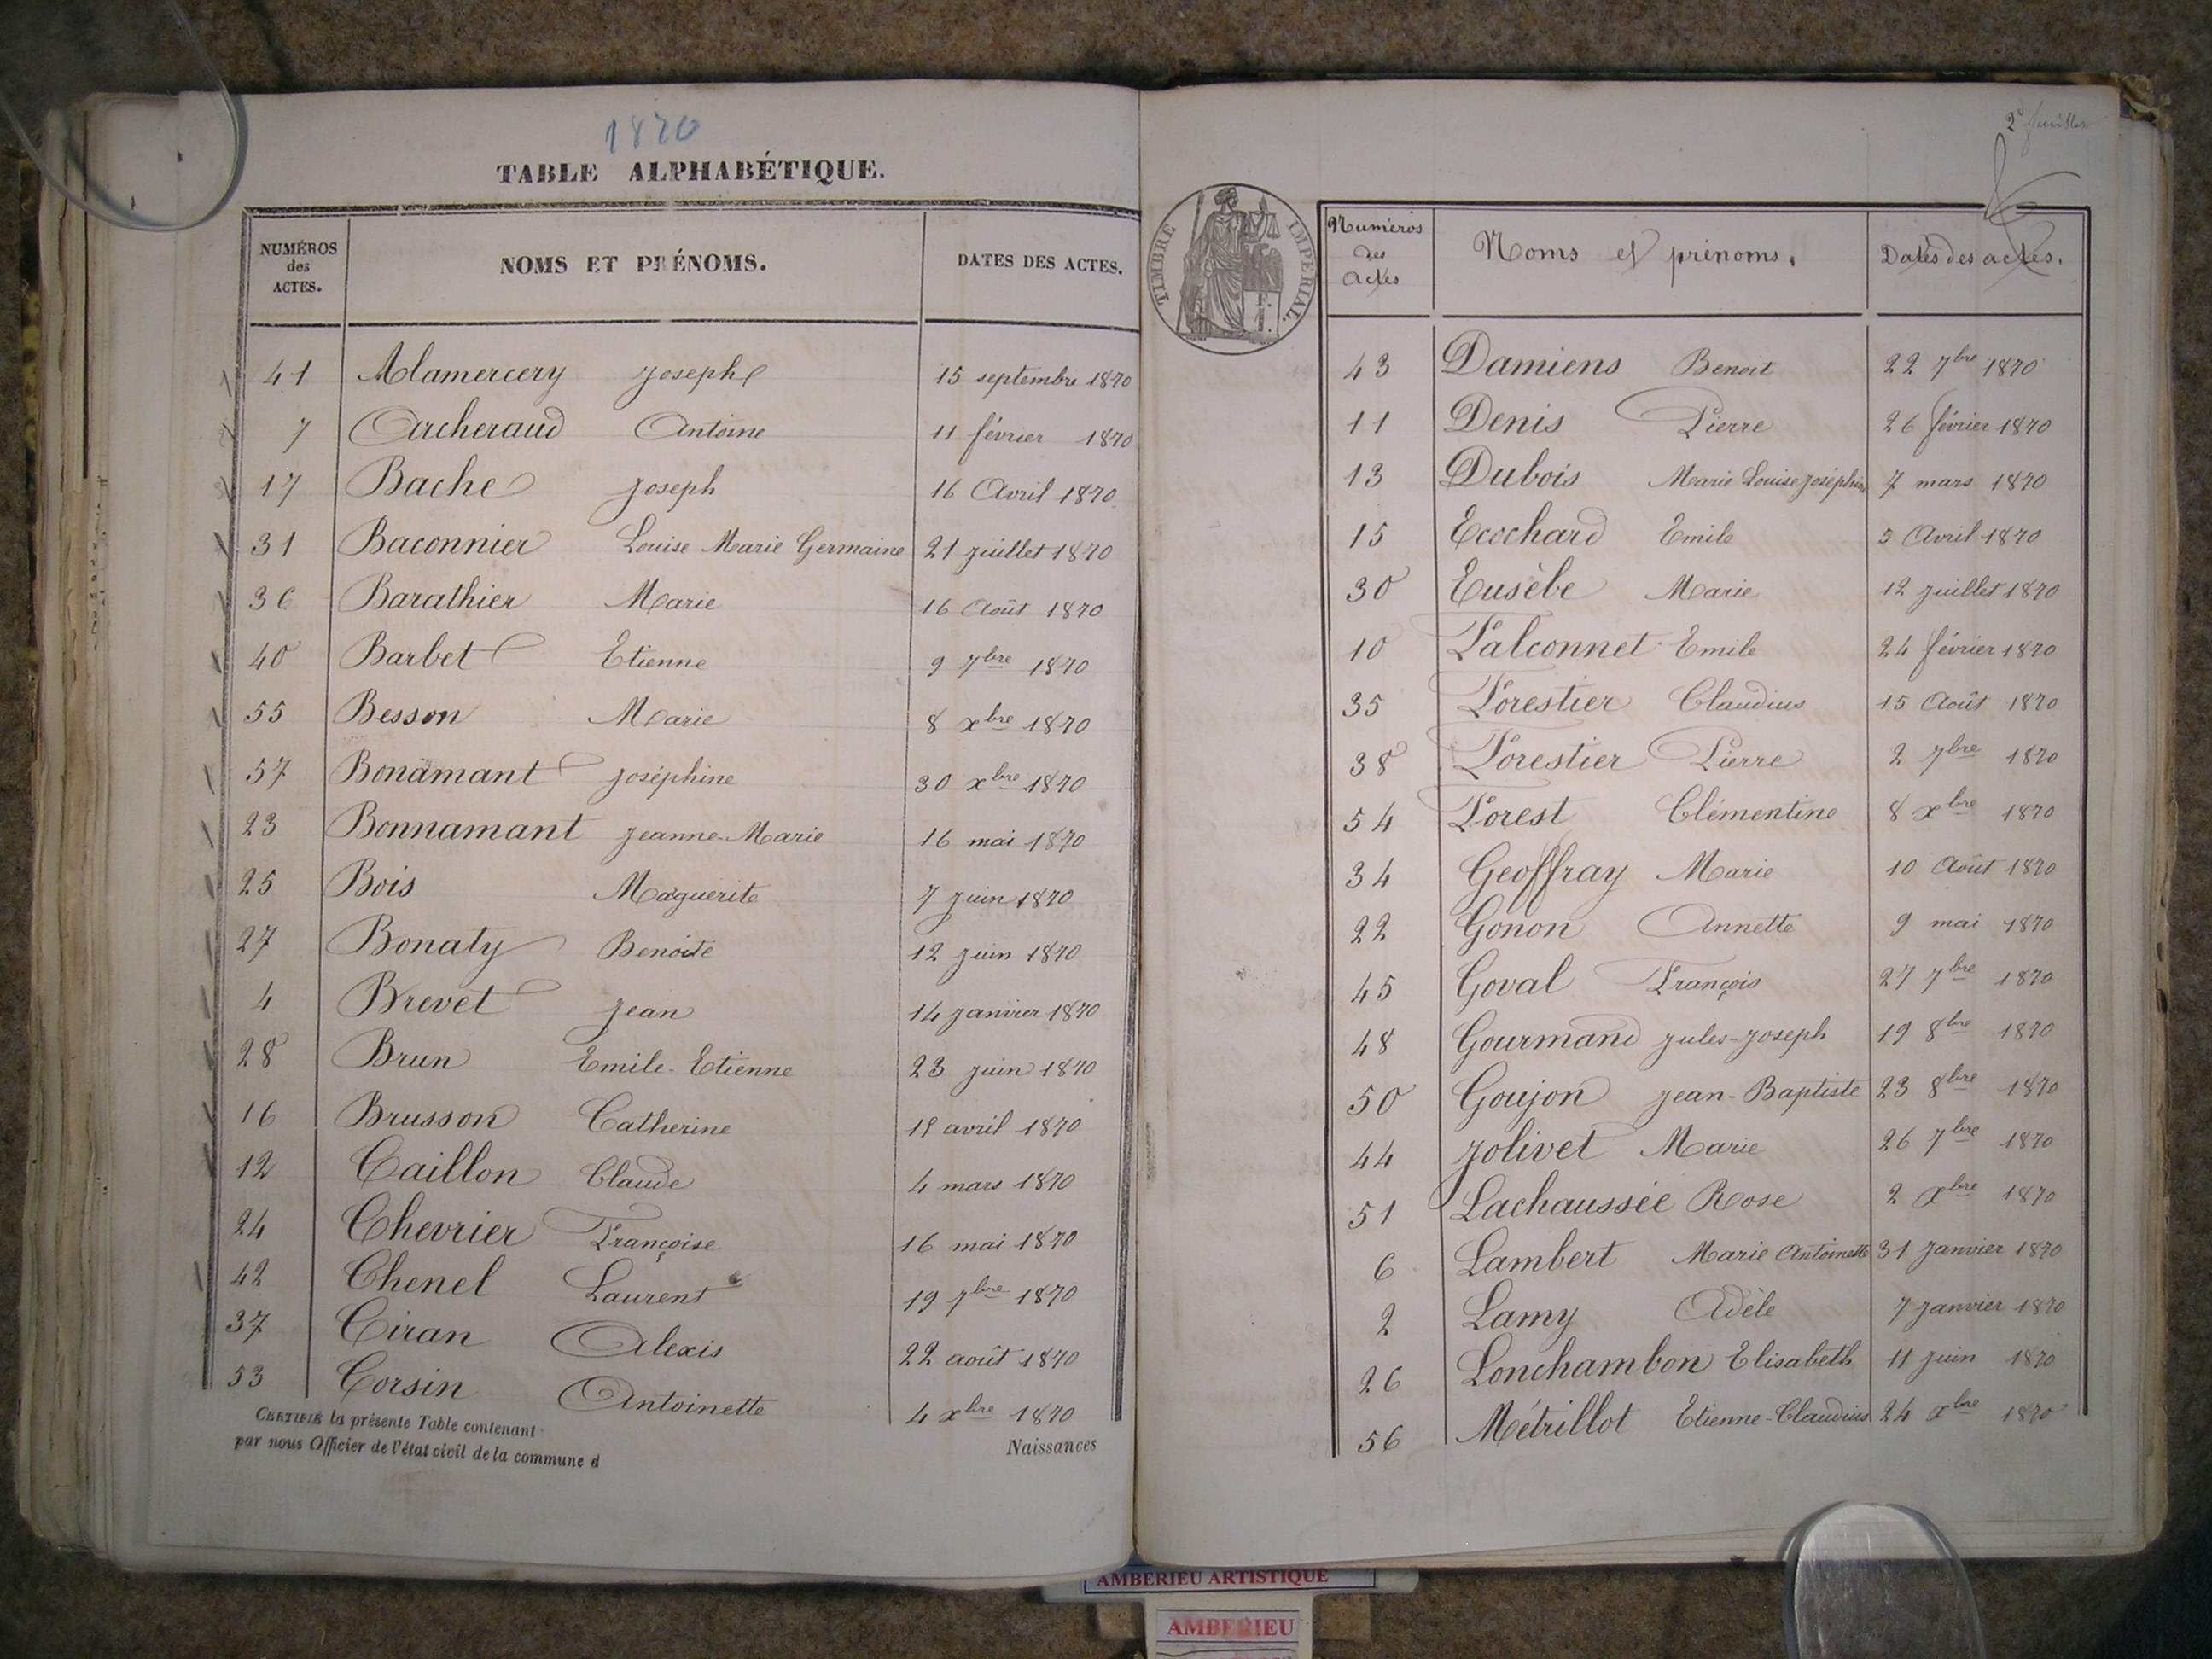 1870
TABLE ALPHABÉTIQUE.
NUMÉROS des ACTES. NOMS ET PRÉNOMS. DATES DES ACTES.
41 Alamercery Joseph 15 septembre 1870
7 Archeraud Antoine 11 février 1870
17 Bache Joseph 16 Avril 1870
31 Baconnier Louise Marie Germaine 21 juillet 1870
36 Barathier Marie 16 Août 1870
40 Barbet Etienne 9 7bre 1870
55 Besson Marie 8 xbre 1870
57 Bonamant Joséphine 30 xbre 1870
23 Bonnamant Jeanne-Marie 16 mai 1870
25 Bois Marguerite 7 juin 1870
27 Bonaty Benoite 12 juin 1870
4 Brevet Jean 14 janvier 1870
28 Brun Emile-Etienne 23 juin 1870
16 Brusson Catherine avril 1870
12 Caillon Claude 4 mars 1870
24 Chevrier Françoise 16 mai 1870
42 Chenel Laurent 19 7bre 1870
37 Ciran Alexis 22 août 1870
53 Corsin Antoinette 4 xbre 1870
CERTIFIÉ la présente Table contenant Naissances
par nous Officier de l'état civil de la commune d
2e feuillet
TIMBRE IMPÉRIAL.
Numéros des actes Noms et prénoms. Dates des actes.
43 Damiens Benoit 22 7bre 1870
11 Denis Pierre 26 février 1870
13 Dubois Marie Louise Joséphine 7 mars 1870
15 Ecochard Emile 5 Avril 1870
30 Eusèbe Marie 12 juillet 1870
10 Falconnet Emile 24 février 1870
35 Forestier Claudius 15 Août 1870
38 Forestier Pierre 2 7bre 1870
54 Forest Clémentine 8 xbre 1870
34 Geoffray Marie 10 Août 1870
22 Gonon Annette 9 mai 1870
45 Goval François 27 7bre 1870
48 Gourmand Jules-Joseph 19 8bre 1870
50 Goujon Jean-Baptiste 23 8bre 1870
44 Jolivet Marie 26 7bre 1870
51 Lachaussée Rose 2 xbre 1870
6 Lambert Marie Antoinette 31 janvier 1870
2 Lamy Adèle 7 janvier 1870
26 Lonchambon Elisabeth 11 juin 1870
56 Métrillot Etienne-Claudius 24 xbre 1870
AMBERIEU ARTISTIQUE
AMBERIEU